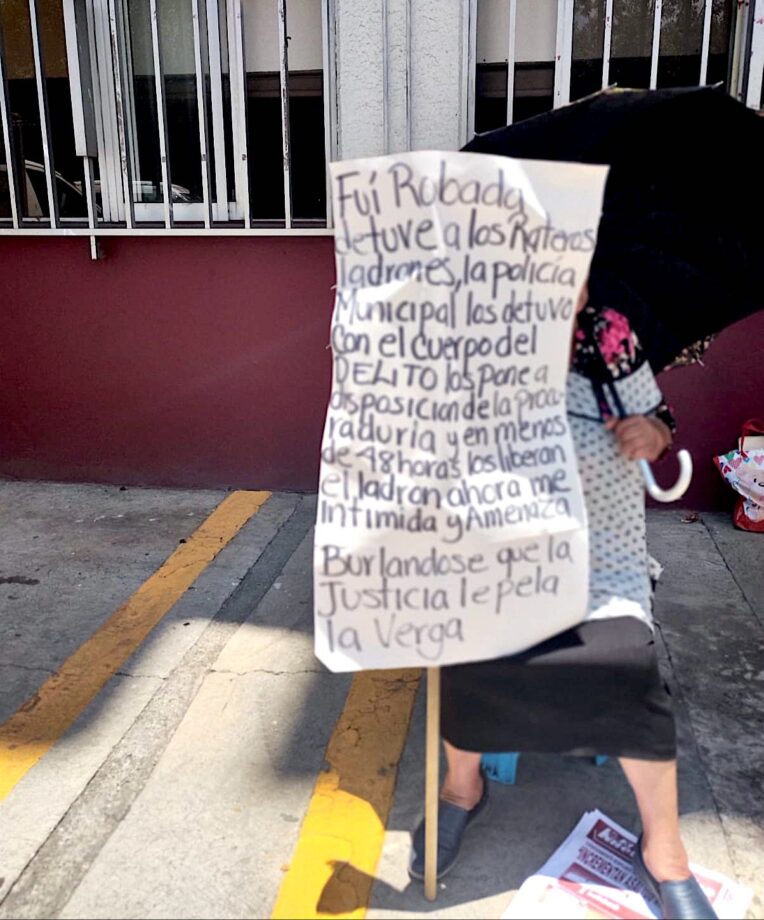 Fuí Robada
detuve a los Rateros
ladrones, la policía
Municipal los detuvo
Con el cuerpo del
DELITO los pone a
disposicion de la procu-
raduria y en menos
de 48 horas los liberan
el ladron ahora me
Intimida y Amenaza
Burlandose que la
Justicia le pela
la Verga
INCREMENTAN